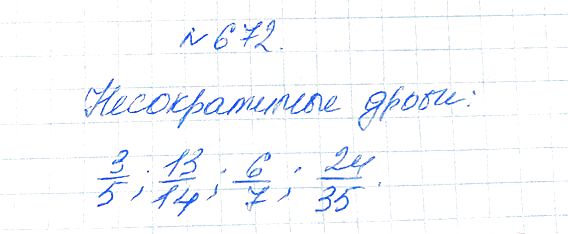 №672.
Несократимые дроби:
3/5; 13/14; 6/7; 24/35.